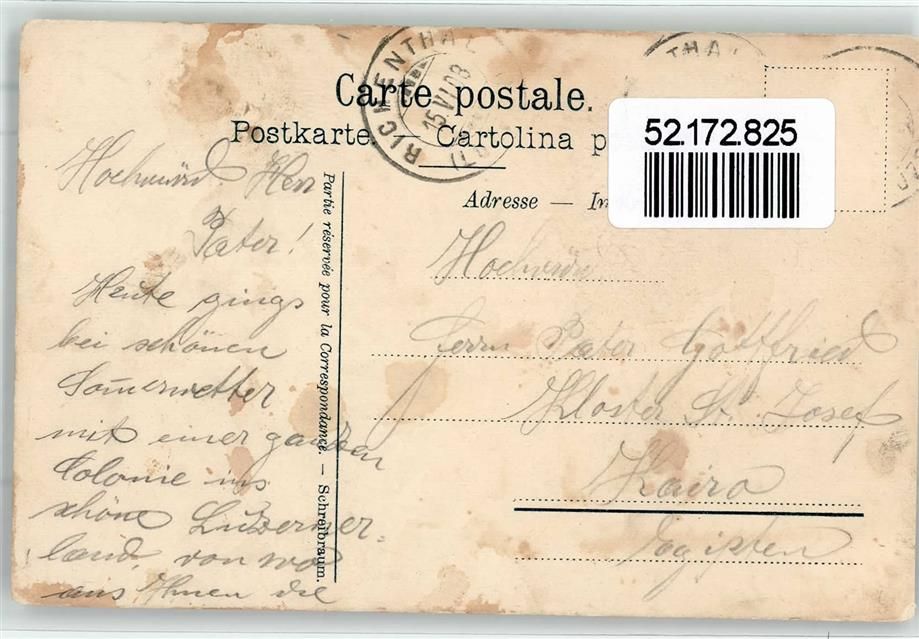 RICKENTHAL
15 VI 08
THAL
Carte postale.
Postkarte. — Cartolina p
52.172.825
Adresse — In
Partie réservée pour la Correspondance. — Schreibraum.
Hochwürd. Herr
Pater!
Heute gings
bei schönen
Somerwetter
mit einer ganzen
Colonie ins
schöne Luzerner-
land, von wo
aus Ihnen die
Hochwürd
Herrn Pater Gottfried
Kloster St. Josef
Kairo
Egipten